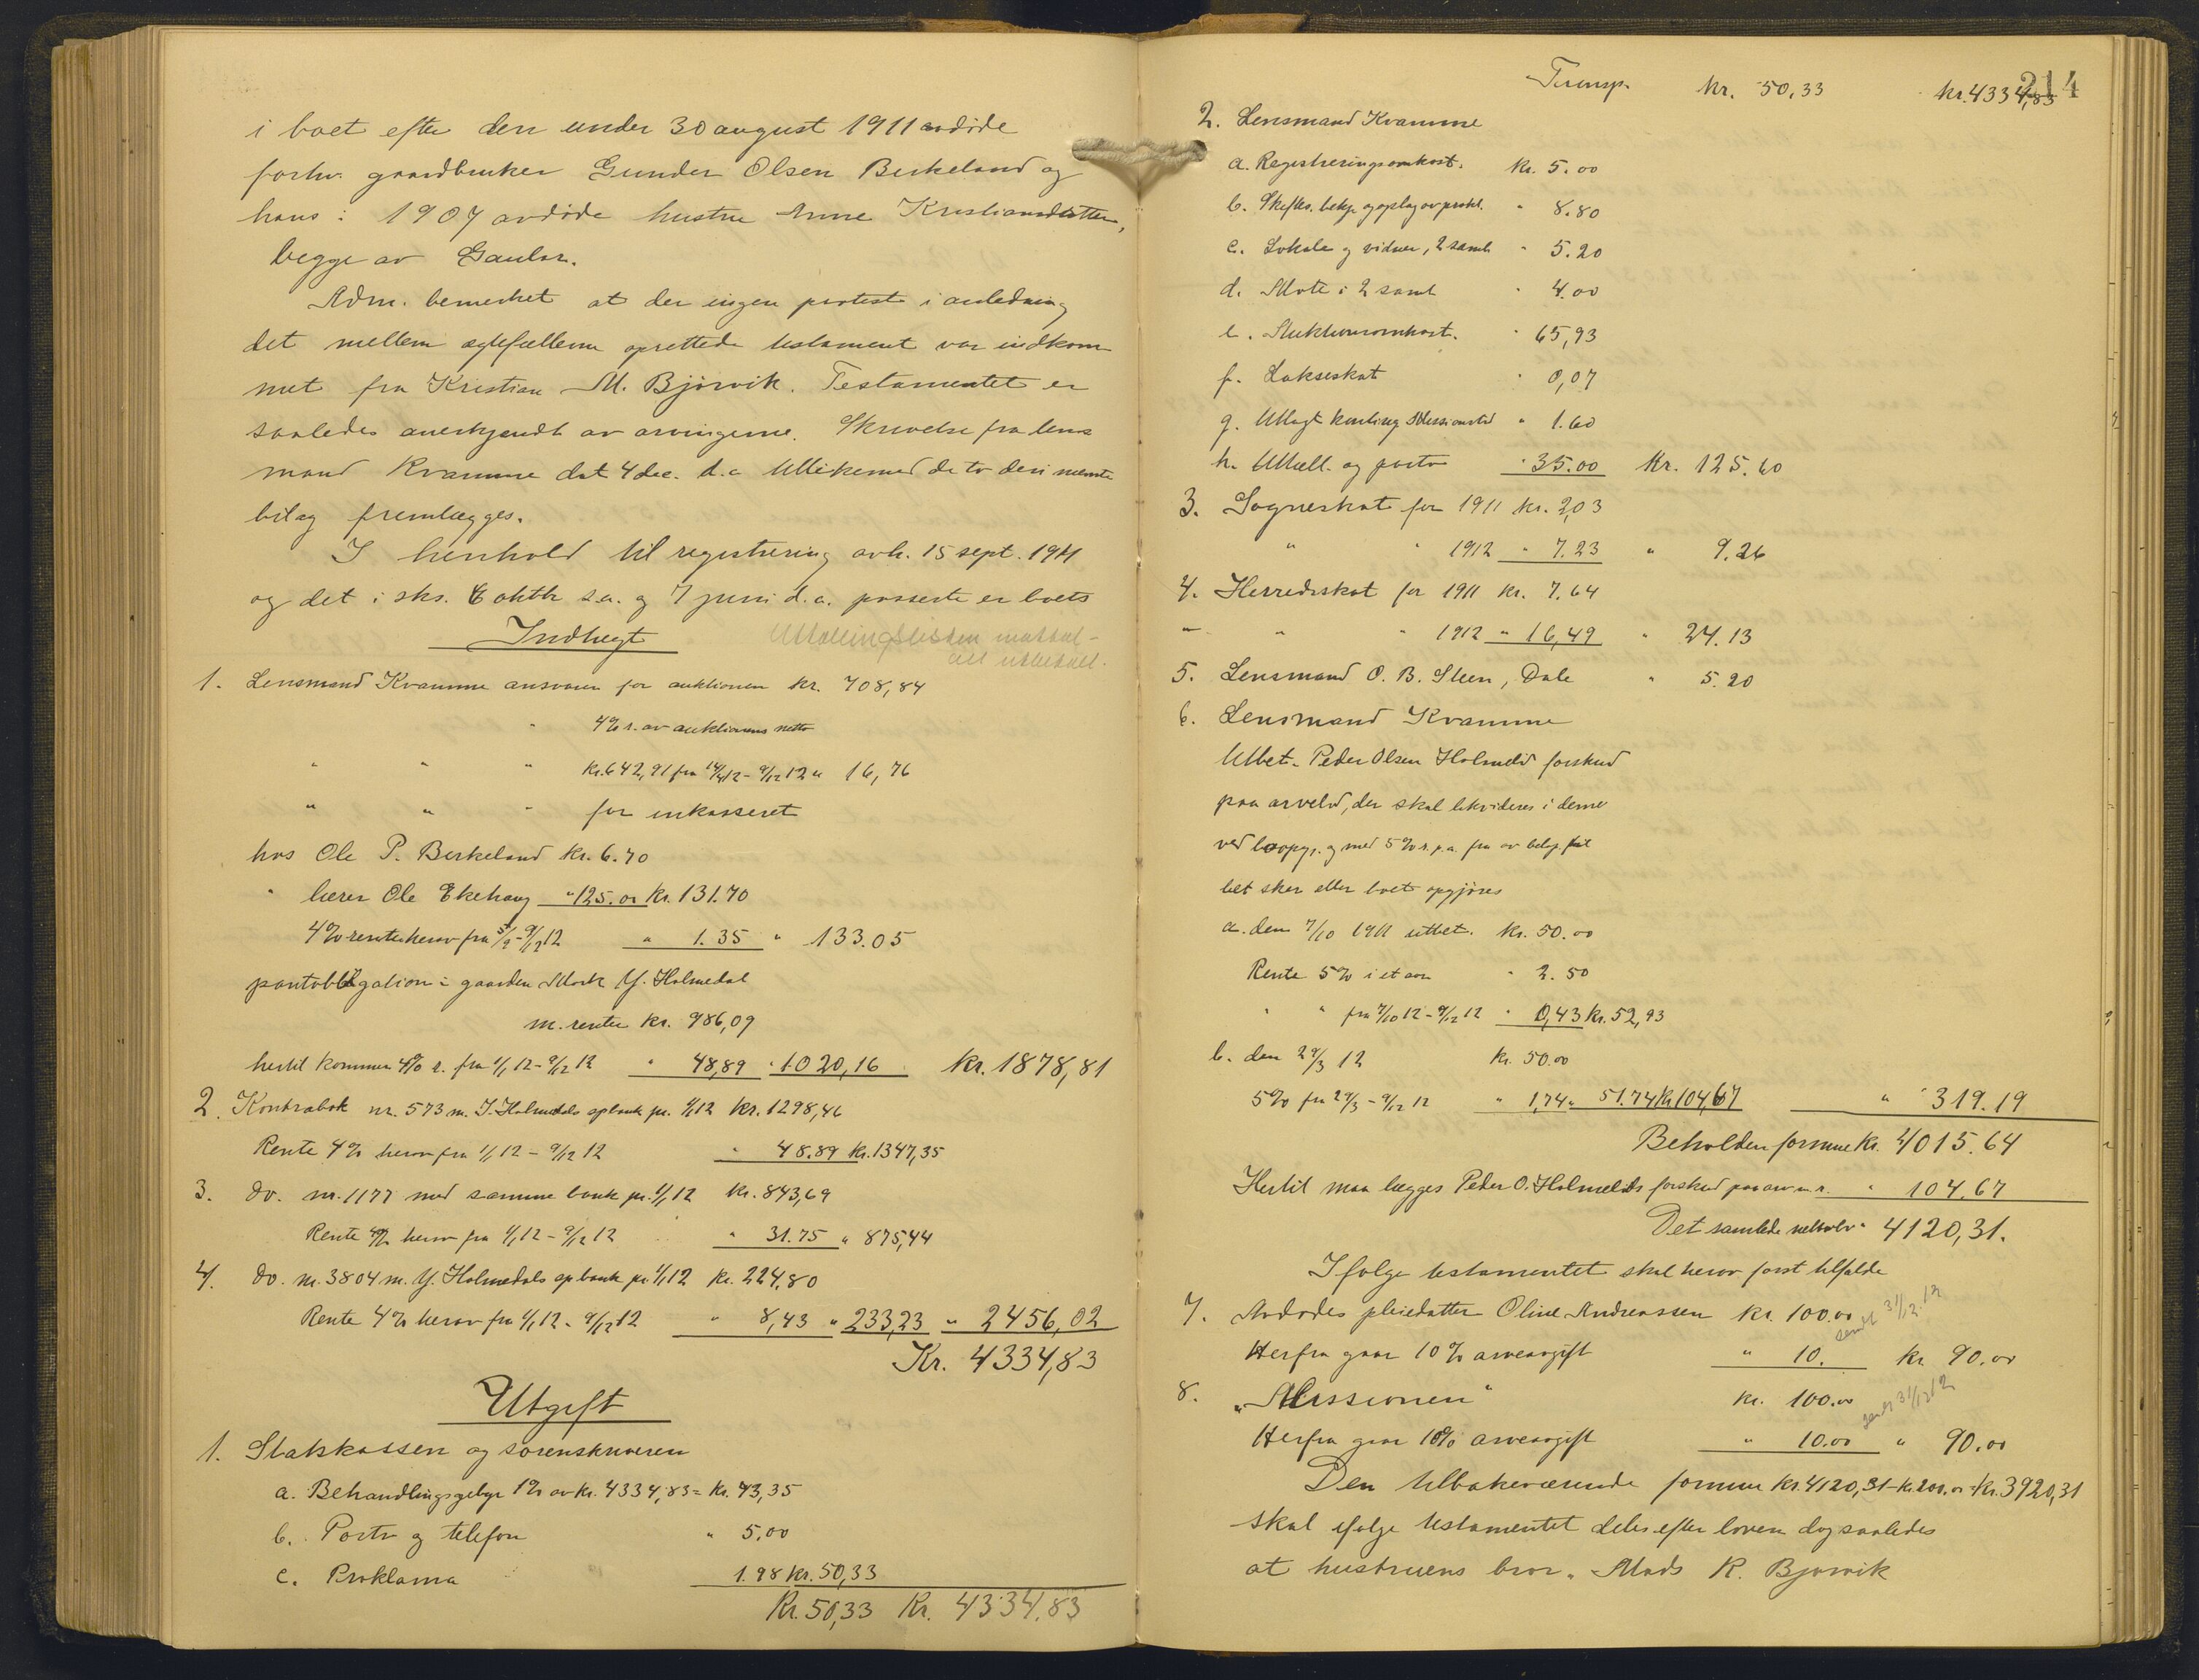 i boet efter den under 30 august 1911 avdøde
forhv. gaardbruker Gunder Olsen Birkeland og
hans i 1907 avdøde hustru Anne Kristiansdatter,
begge av Gaular.
Adm. bemerket at der ingen protest i anledning
det mellem egtefællerne oprettede testament var indkom-
met fra Kristian M. Bjørvik. Testamentet er
saaledes anerkjendt av arvingerne. Skrivelse fra lens
mand Kvamme dat 4 dec. d.a. tillikemed de to deri nævnte
bilag fremlægges.
I henhold til registrering avh. 15 sept. 1911
og det i sks. 6 oktb s.a. og 7 juni d.a. passerte er boets
Indtægt
1. Lensmand Kvamme ansvarer for auktionen kr. 708,84
" 4% r. av auktionens netto
" " " Kr. 642,91 fra 14/4 12 - 9/12 12 " 16,76
" " " for inkasseret
hos Ole P. Birkeland kr. 6.70
" lærer Ole Ekehaug " 125.00 kr. 131.70
4% renter herav fra 5/9 - 9/12 12 " 1.35 " 133.05
pantobligation i gaarden Mork Y. Holmedal
m. renter kr. 986,09
hertil kommer 4% r. fra 1/1 12 - 9/12 12 " 48,89 " 1020,16 kr. 1878,81
2. Kontrabok nr. 573 m. I. Holmedals spbank pr. 1/1 12 kr. 1298,46
Rente 4% herav fra 1/1 12 - 9/12 12 " 48.89 kr. 1347,35
3. do. nr. 1177 med samme bank pr. 1/1 12 kr. 843,69
Rente 4% herav fra 1/1 12 - 9/12 12 " 31.75 " 875,44
4. do. nr. 3804 m. Y. Holmedals spbank pr. 1/1 12 kr. 224,80
Rente 4% herav fra 1/1 12 - 9/12 12 " 8,43 " 233,23 " 2456,02
Kr. 4334,83
Utgift
1. Statskassen og sorenskriveren
a. Behandlingsgebyr 1% av kr. 4334,83 = kr. 43,35
b. Porto og telefon " 5,00
c. Proklama 1.98 kr. 50,33
Kr. 50,33 Kr. 4334.83
214
Transp. kr. 50,33 kr. 4334,83
2. Lensmand Kvamme
a. Registreringsomkost. kr. 5.00
b. Skiftes. bekj. og oplag av prokl. " 8.80
c. Lokale og vidner, 2 saml. " 5.20
d. Møte i 2 saml " 4.00
e. Auktionsomkost. " 65,93
f. Lakseskat " 0,07
g. Utlagt 1.60
h. og porto " 35.00 kr. 125.60
3. Sogneskat for 1911 kr. 2,03
" " 1912 " 7.23 " 9.26
4. Herredsskat for 1911 kr. 7.64
" " " 1912 " 16,49 " 24.13
5. Lensmand O. B. Steen, Dale " 5.20
6. Lensmand Kvamme
Utbet. Peder Olsen Holmelid forskud
paa arvelod, der skal likvideres i denne
ved boopgj. og med 5% r. p.a. fra
bet sker eller boet opgjøres
a. den 7/10 1911 utbet. kr. 50.00
Rente 5% i et aar " 2.50
" " fra 7/10 12 - 9/12 12 " 0,43 kr. 52,93
b. den 29/3 12 kr. 50.00
5% fra 29/3 - 9/12 12 " 1,74 " 51.74 kr 104,67 " 319.19
Beholden formue kr. 4015.64
Hertil maa lægges Peder O. Holmelids forskud paa arv m. r. " 104.67
Det samlede 4120,31.
Ifølge testamentet skal herav først tilfalde
7. Avdødes pleiedatter Oline Andreassen kr. 100.00
sendt 31/12.12
Herfra gaar 10% arveavgift " 10. kr 90.00
8. "Missionen" kr. 100.00
sendt 31/12 12
Herfra gaar 10% arveavgift " 10.00 " 90.00
Den tilbakeværende formue kr. 4120,31 - kr. 200.00 = kr. 3920,31
skal ifølge testamentet deles efter loven dog saaledes
at hustruens bror, Mads K. Bjørvik